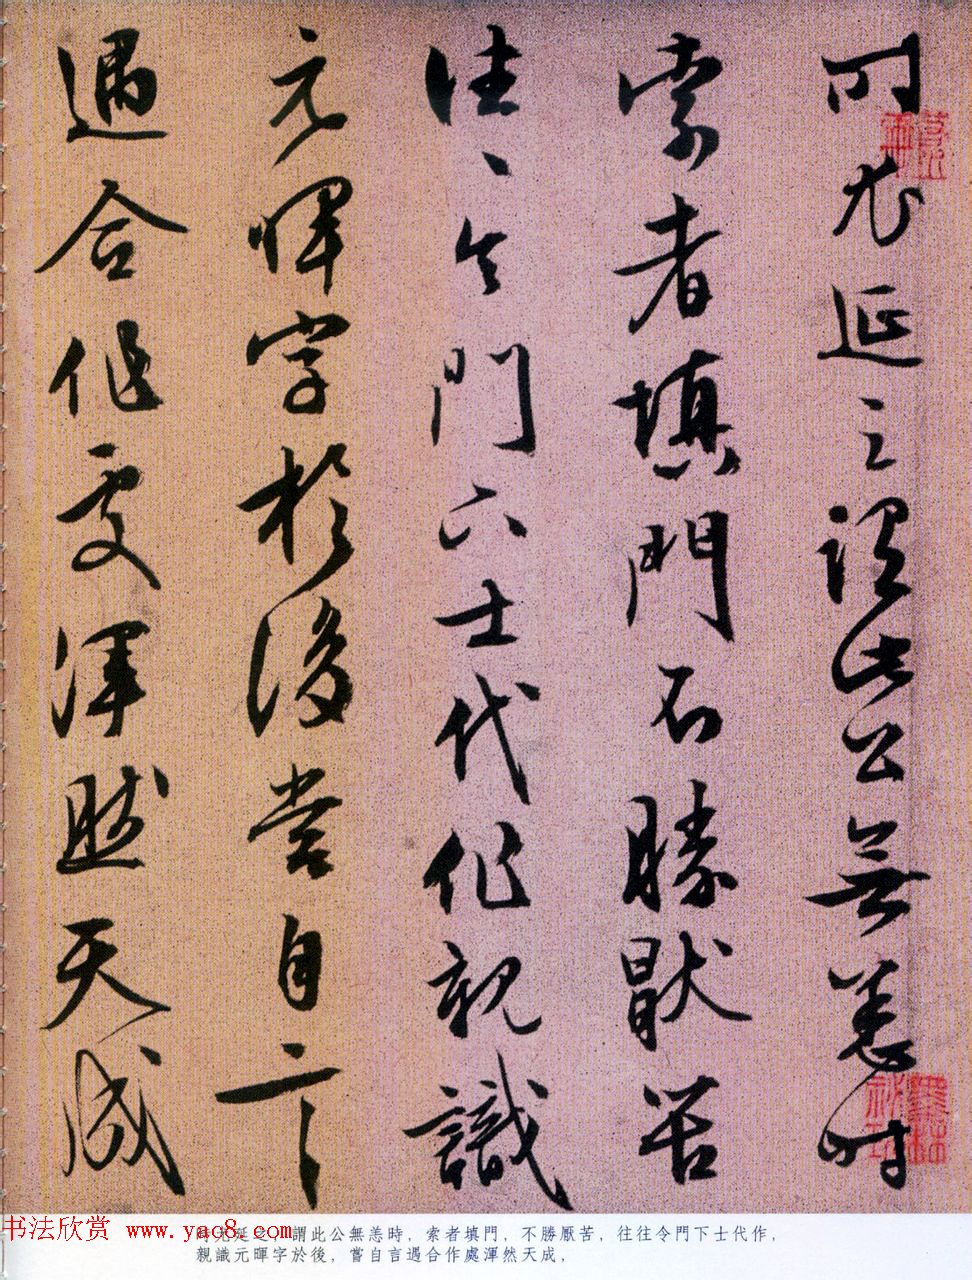 时尤延之謂此公無恙時
索者填門不勝猒苦
往々令門下士代作親識
元暉字於後嘗自言
遇合作處渾然天成
書法欣赏 www.yac8.com
謂此公無恙時,索者填門,不勝厭苦,往往令門下士代作,
親識元暉字於後,嘗自言遇合作處渾然天成,